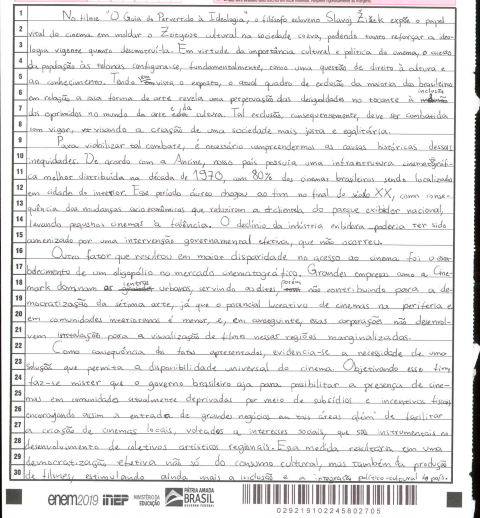 No filme "O Guia do Pervertido à Ideologia, o filósofo esloveno Slavoj Žižek expõe o papel
vital do cinema em moldar o Zeitgeist cultural na sociedade coeva, podendo tanto reforçar a ideo-
logia vigente quanto desconstruí-la. Em virtude da importância cultural e política do cinema, o acesso
da população às telonas configura-se, fundamentalmente, como uma questão de direito à cultura e
ao conhecimento. Tendo em vista o exposto, o atual quadro de exclusão da maioria dos brasileiros
em relação a essa forma de arte revela uma perpetuação das desigualdades no tocante à inclusão
dos oprimidos no mundo da arte e da cultura. Tal exclusão, consequentemente, deve ser combatida
com vigor, visando a criação de uma sociedade mais justa e egalitária.
Para viabilizar tal combate, é necessário compreendermos as causas históricas dessas
inequidades. De acordo com a Ancine, nosso país possuía uma infraestrutura cinematográfi-
ca melhor distribuída na década de 1970, com 80% dos cinemas brasileiros sendo localizados
em cidades do interior. Esse período áureo chegou ao fim no final do século XX, como conse-
quência das mudanças socioeconômicas que reduziram a clientela do parque exibidor nacional,
levando pequenos cinemas à falência. O declínio da indústria exibidora poderia ter sido
amenizado por uma intervenção governamental efetiva, que não ocorreu.
Outro fator que resultou em maior disparidade no acesso ao cinema foi o
de um oligopólio no mercado cinematográfico. Grandes empresas como a Cine-
mark dominam os centros urbanos, servindo as elites, porém não contribuindo para a de-
mocratização da sétima arte, já que o potencial lucrativo de cinemas na periferia e
em comunidades interioranas é menor, e, em conseguinte, essas corporações não desenvol-
vem instalações para a visualização de filmes nessas regiões marginalizadas.
Como consequência dos fatos apresentados, evidencia-se a necessidade de uma
solução que permita a disponibilidade universal do cinema. Objetivando esse fim,
faz-se mister que o governo brasileiro aja para possibilitar a presença de cine-
mas em comunidades atualmente deprivadas por meio de subsídios e incentivos fiscais
encorajando assim a entrada de grandes negócios em tais áreas além de facilitar
a criação de cinemas locais, voltados a interesses sociais, que são instrumentais no
desenvolvimento de coletivos artísticos regionais. Essa medida resultaria em uma
democratização efetiva não só do consumo cultural, mas também da produção
de filmes, estimulando ainda mais a inclusão e a integração político-cultural do país.
enem2019 inep MINISTÉRIO DA EDUCAÇÃO PÁTRIA AMADA BRASIL
029219102245802705